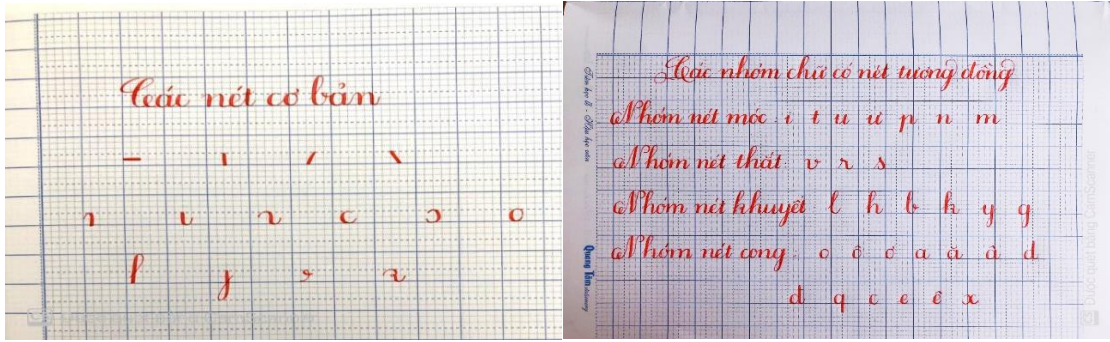 Các nét cơ bản
Các nhóm chữ có nét tương đồng
Nhóm nét móc: i t u ư p n m
Nhóm nét thắt: v r s
Nhóm nét khuyết: l h b k y g
Nhóm nét cong: o ô ơ a ă â d
đ q c e ê x
Được quét bằng CamScanner